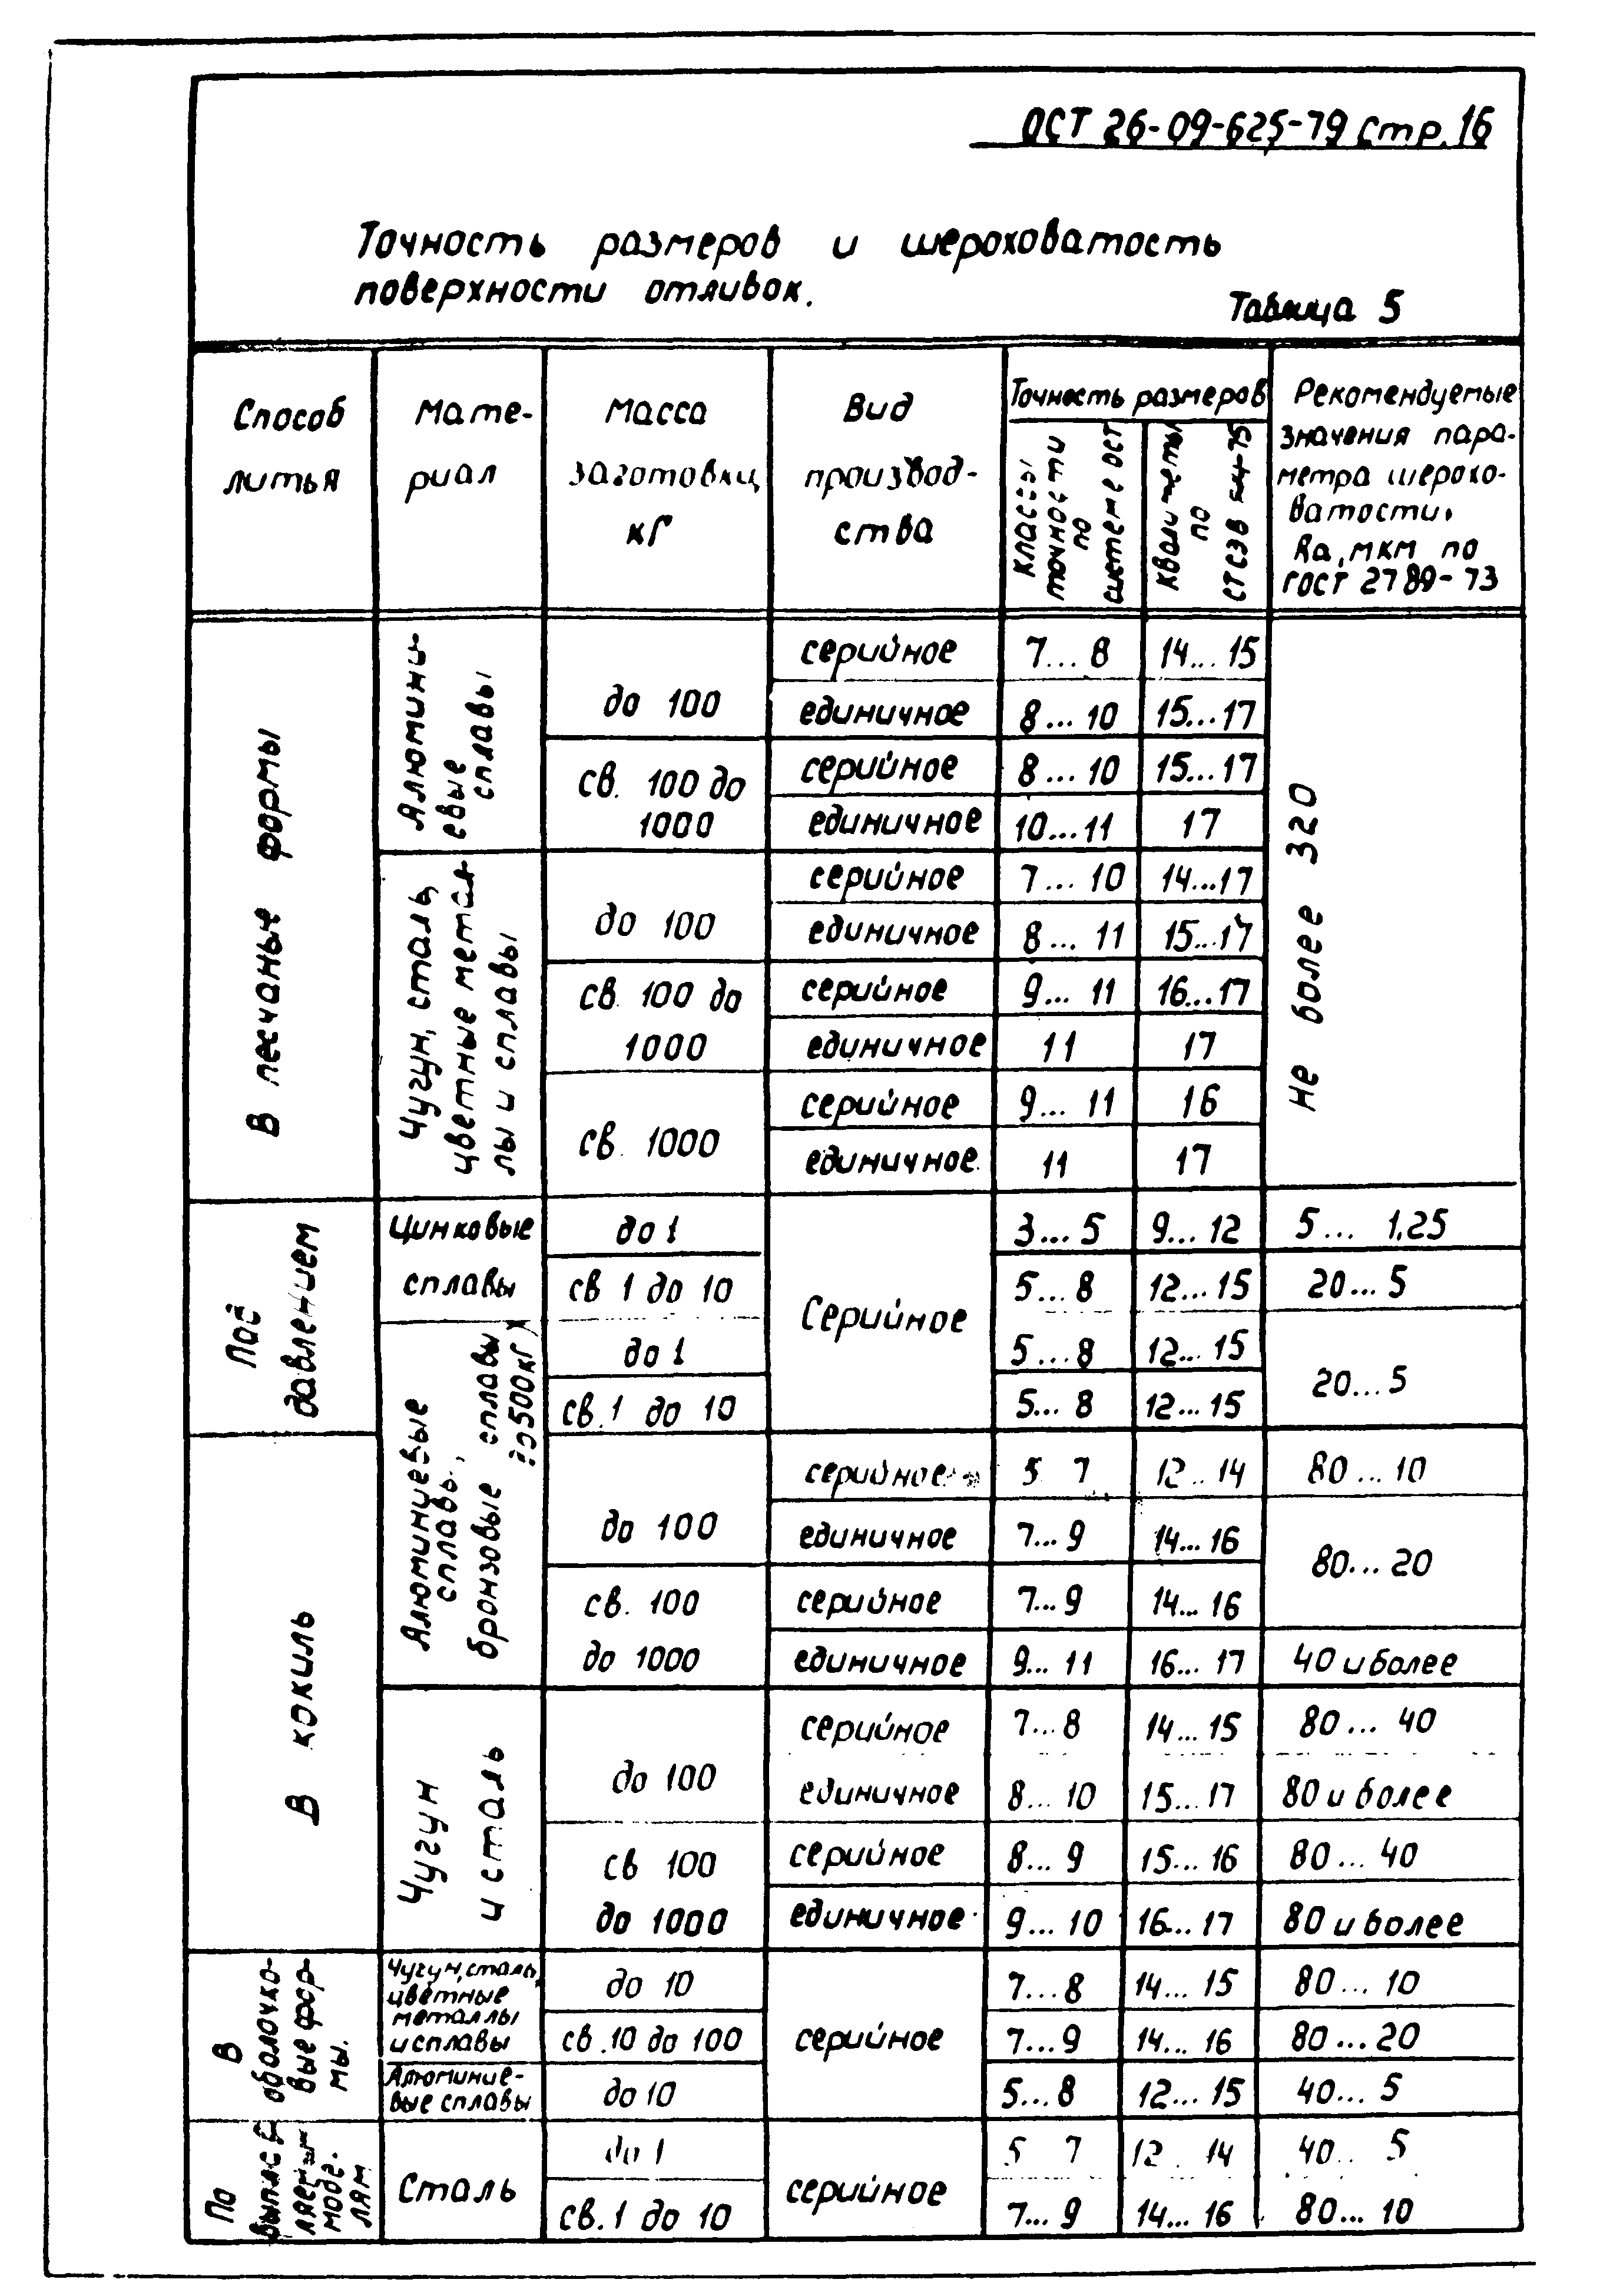 ОСТ 26-09-625-79 стр. 16
Точность размеров и шероховатость
поверхности отливок.
Таблица 5
Способ
литья
Мате-
риал
Масса
заготовки
кг
Вид
производ-
ства
Точность размеров
классы
точности
по
системе ОСТ
квалитеты
по
СТ СЭВ 144-75
Рекомендуемые
значения пара-
метра шерохо-
ватости,
Ra, мкм по
ГОСТ 2789-73
В песчаные формы
Алюмини-
евые
сплавы
до 100
серийное 7...8 14...15
единичное 8...10 15...17
св. 100 до
1000
серийное 8...10 15...17
единичное 10...11 17
не более 320
Чугун, сталь,
цветные метал-
лы и сплавы
до 100
серийное 7...10 14...17
единичное 8...11 15...17
св. 100 до
1000
серийное 9...11 16...17
единичное 11 17
св. 1000
серийное 9...11 16
единичное 11 17
Под
давлением
Цинковые
сплавы
до 1 3...5 9...12 5...1,25
св 1 до 10 5...8 12...15 20...5
Серийное
Алюминиевые
сплавы,
бронзовые сплавы
до 1 5...8 12...15
св. 1 до 10 5...8 12...15
20...5
В кокиль
до 100
серийное 5 7 12..14 80...10
единичное 7...9 14...16
80...20
св. 100
до 1000
серийное 7...9 14...16
единичное 9...11 16...17 40 и более
Чугун
и сталь
до 100
серийное 7...8 14...15 80...40
единичное 8...10 15...17 80 и более
св 100
до 1000
серийное 8...9 15...16 80...40
единичное 9...10 16...17 80 и более
В
оболочко-
вые фор-
мы.
Чугун, сталь,
цветные
металлы
и сплавы
до 10 7...8 14...15 80...10
св. 10 до 100 7...9 14...16 80...20
серийное
Алюминие-
вые сплавы
до 10 5...8 12...15 40...5
По
выплав-
ляемым
моде-
лям
Сталь
до 1 5 7 12 . 14 40.. 5
серийное
св. 1 до 10 7...9 14...16 80...10